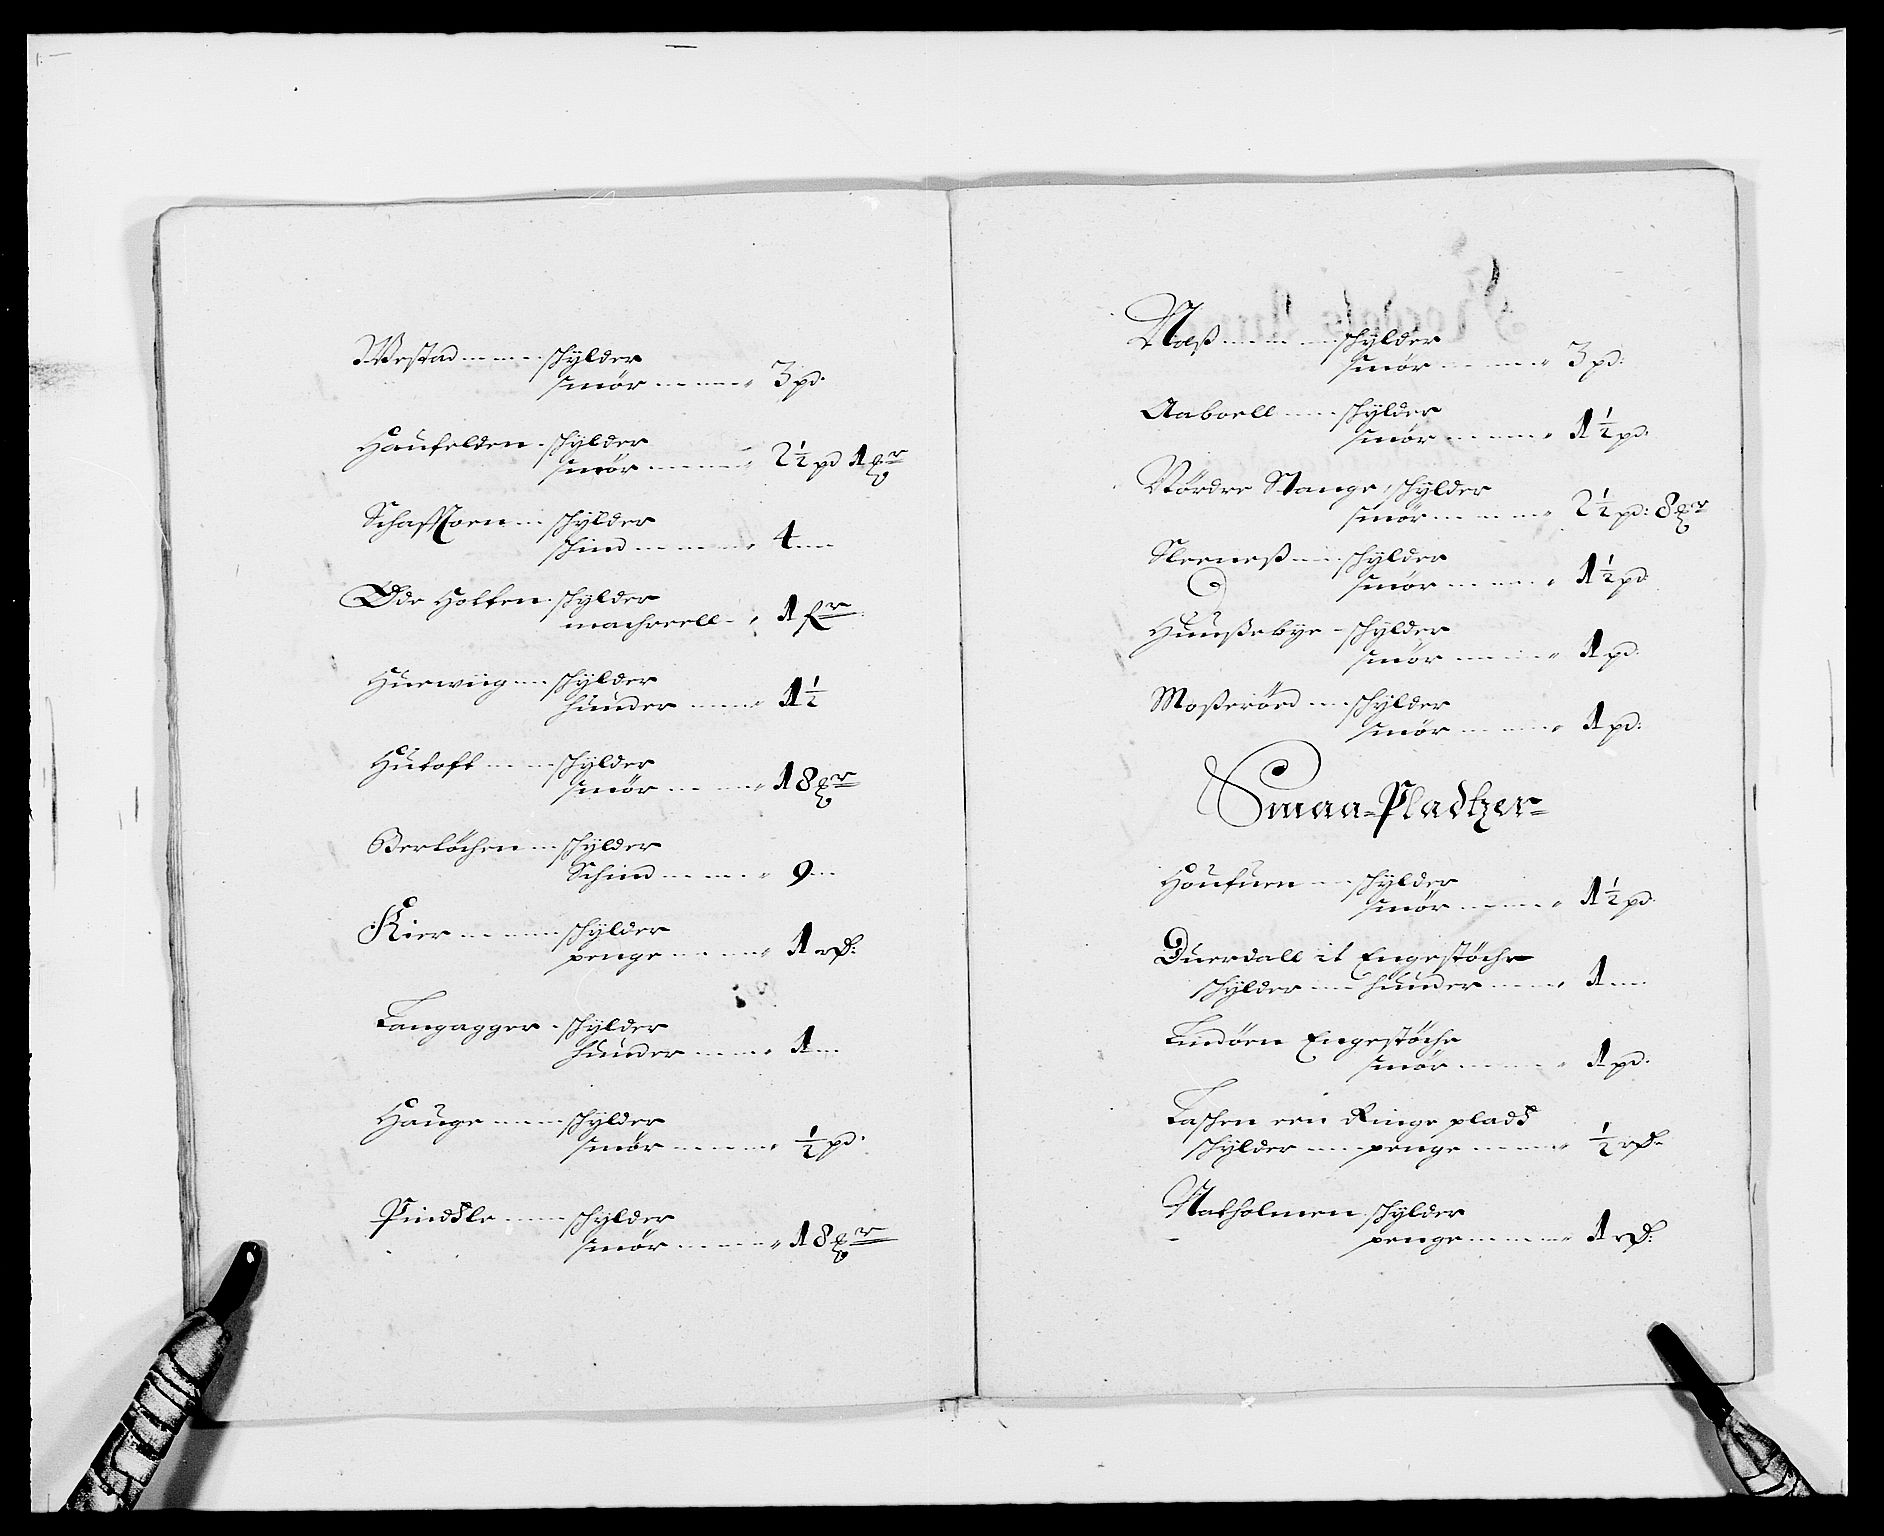 Westad - - - schylder
smör - - - - 3 pd.
Haufelden - schylder
smör - - - - 2½ pd 1 
schylder
schind - - - - 4 -
Öde Holten - schylder
machrell - 1
Huewiig - - schylder
hunder - - - 1½
Hutoft - - - schylder
smör - - - - 18
Berköchen - - schylder
Schind - - - - 9 -
Kier - - - - schylder
penge - - - - 1 rd:
Langagger - schylder
hunder - - - 1 -
Hauge - - - schylder
smör - - - - ½ pd.
Pindsle - - - schylder
smör - - - - 18
Næß - - - - schylder
smör - - - - 3 pd:
Aaboell - - - schylder
smör - - - - 1½ pd:
Nördre Stange, schylder
smör - - - - 2½ pd: 8
schylder
smör - - - - 1½ pd
Hunßebye - schylder
smör - - - - 1 pd:
Moßeröed - - schylder
smör - - - - 1 pd:
Smaa=Pladtzer=
schylder
smör - - - - 1½ pd.
Duerdall it Engestöche
schylder - - hunder - - - 1 -
Lindöen Engestöche
smör - - - - 1 pd:
een Ringe plads
schylder - - penge - - - ½ rd.
Natholmen schylder
penge - - - - 1 rd: